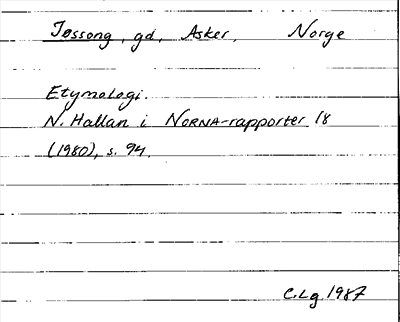 Jøssong, gd, Asker, Norge
Etymologi.
N. Hallan i NORNA-rapporter 18
(1980), s. 94.
C.Lg 1987